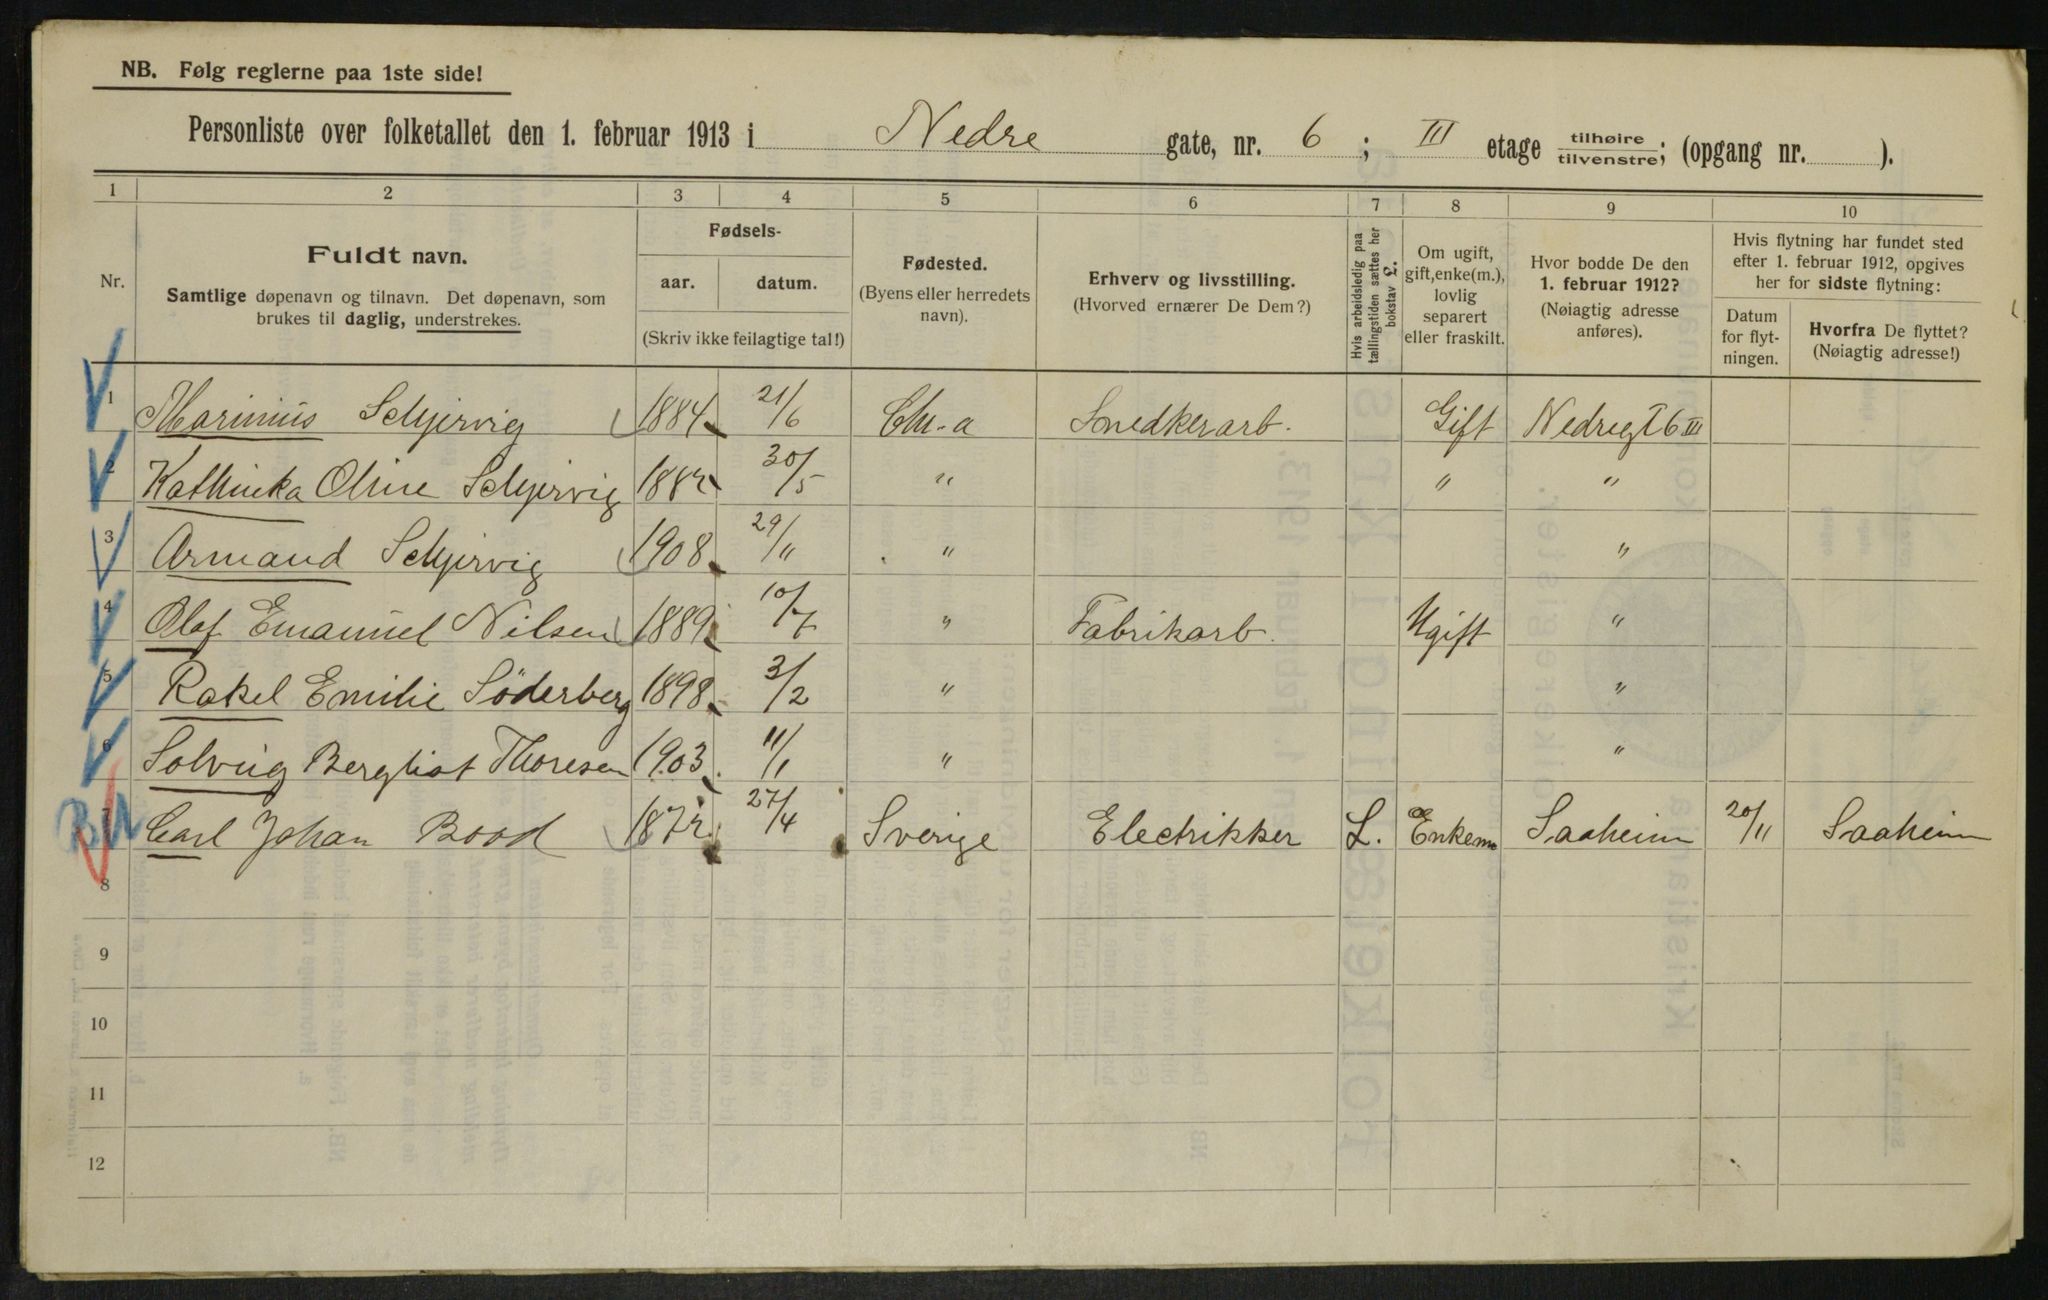 NB. Følg reglerne paa 1ste side!
Personliste over folketallet den 1. februar 1913 i Nedre gate, nr. 6 ; III etage tilhøire/tilvenstre; (opgang nr. ).
1 2 3 4 5 6 7 8 9 10
Nr.
Fuldt navn.
Samtlige døpenavn og tilnavn. Det døpenavn, som
brukes til daglig, understrekes.
Fødsels-
aar. datum.
(Skriv ikke feilagtige tal!)
Fødested.
(Byens eller herredets
navn).
Erhverv og livsstilling.
(Hvorved ernærer De Dem?)
Hvis arbeidsledig paa
tællingstiden sættes her
bokstav L.
Om ugift,
gift, enke(m.),
lovlig
separert
eller fraskilt.
Hvor bodde De den
1. februar 1912?
(Nøiagtig adresse
anføres).
Hvis flytning har fundet sted
efter 1. februar 1912, opgives
her for sidste flytning:
Datum
for flyt-
ningen.
Hvorfra De flyttet?
(Nøiagtig adresse!)
1 Marinius Schjervig 1884 21/6 Chr-a Snedkerarb. Gift Nedregt 6 III
2 Kathinka Oline Schjervig 1882 30/5 " " "
3 Armand Schjervig 1908 29/11 " "
4 Olaf Emanuel Nilsen 1889 10/7 " Fabrikarb. Ugift "
5 Rakel Emilie Söderberg 1898 3/2 " "
6 Solveig Bergliot Thoresen 1903 11/1 " "
7 Carl Johan Bood 1872 27/4 Sverige Electrikker L. Enkem Saaheim 20/11 Saaheim
8
9
10
11
12